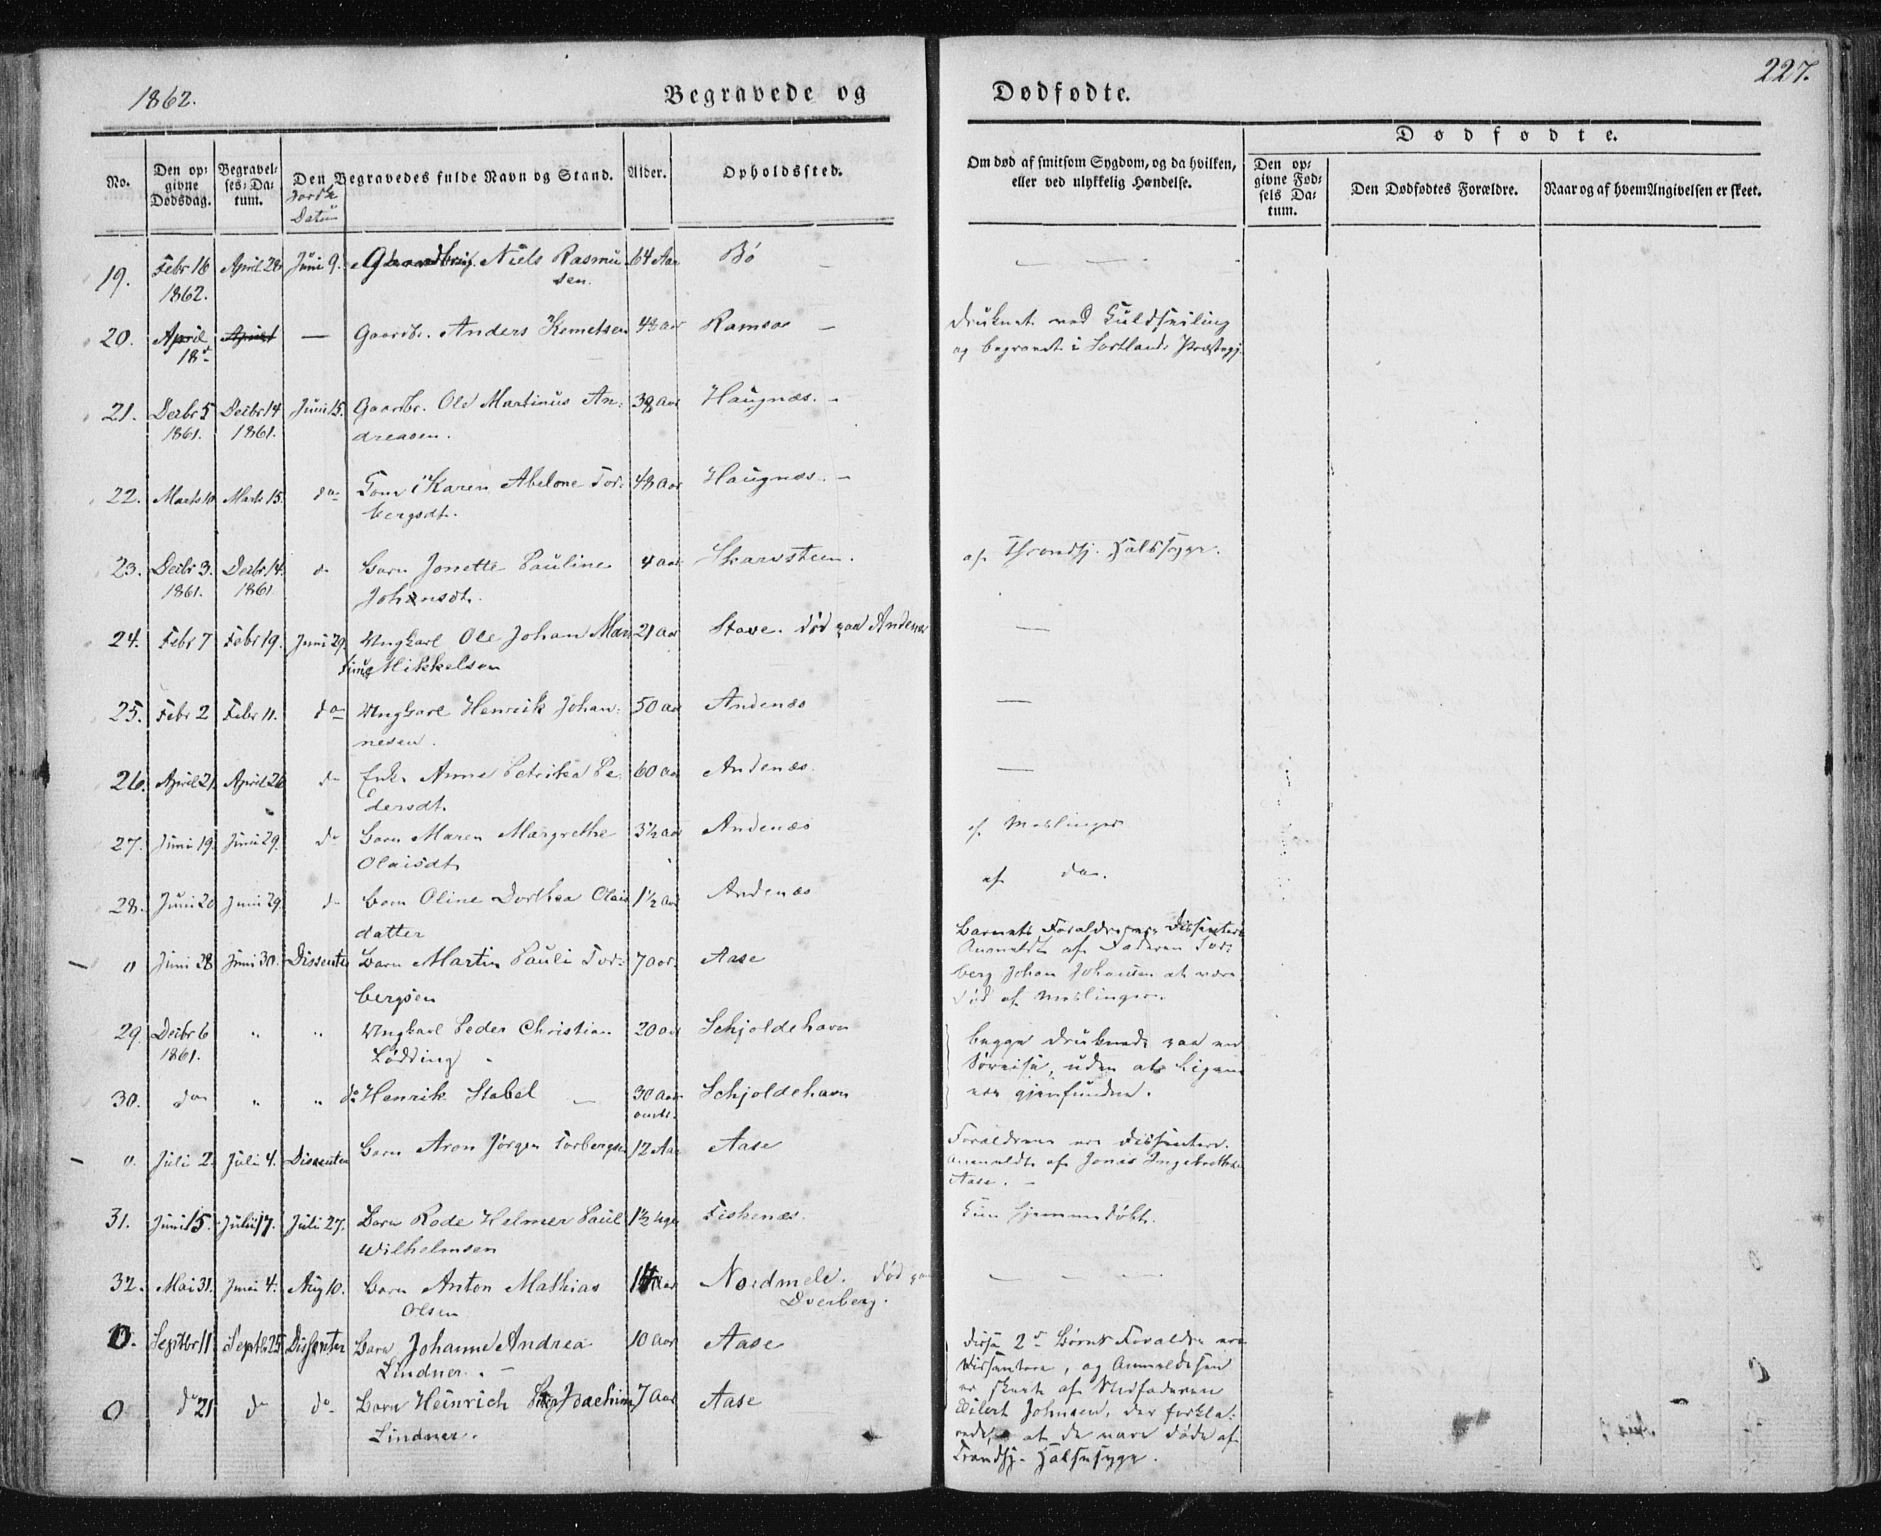 1862.
Begravede og
Dødfødte.
227.
No.
Den op-
givne
Dødsdag.
Begravel-
ses-Da-
tum.
Den Begravedes fulde Navn og Stand.
Jordk
Datum
Alder.
Opholdssted.
Om død af smitsom Sygdom, og da hvilken,
eller ved ulykkelig Hændelse.
Dødfødte.
Den op-
givne Fød-
sels Da-
tum.
Den Dødfødtes Forældre.
Naar og af hvem Angivelsen er skeet.
19. Febr 16 April 28 Juni 9. Niels Rasmu- 64 Aar Bø —
1862. sen.
20. April — Gaardbr. Anders Kometsen 48 aar Ramsaa — druknet ved Kuldseiling
18d og begravet i Sortlands Præstegj.
21. Decbr 5 Decbr 14 Juni 15. Gaardbr. Ole Martinus An- 39 Aar Haugnæs. —
1861. 1861. dreasen.
22. Marts 10 Marts 15. do Karen Abelone Tor- 48 Aar Haugnæs. —
bergsdt.
23. Decbr 3. Decbr 14. do Barn Jonette Pauline 4 Aar Skarvsteen. af Throndhj. Halssyge.
1861. 1861. Johansdt.
24. Febr 7 Febr 19. Juni 29. Ungkarl Ole Johan Mar- 21 Aar Stave. død paa Andenæs —
tinus Mikkelsen
25. Febr 2 Febr 11. do Ungkarl Henrik Johan- 50 aar Andenæs —
nesen.
26. April 21. April 26 do Enke Anne Petrikea Pe- 60 aar Andenæs. —
dersdt.
27. Juni 19. Juni 29. do Barn Maren Margrethe 3½ aar Andenæs af Mæslinger
Olaisdt.
28. Juni 20 Juni 29. do Barn Oline Dorthea Olais 1½ Aar Andenæs af do.
datter
0 Juni 28 Juni 30. Dissenter Barn Martin Pauli Tor- 7 aar. Aase
bergsen
Barnets Forældre ere Dissentere
Anmeldt af Faderen Tor-
berg Johan Johansen at være
død af Mæslinger.
29. Decbr 6 " " Ungkarl Peder Christian 20 aar Schjoldehavn
1861. Lødding
30. do " " do Henrik Stabel — 30 Aar Schjoldehavn
omtr.
begge druknede paa en
Søreise, uden at Ligene
ere gjenfundne.
0. Juli 2. Juli 4. Dissenter Barn Aron Jørgen Torbergsen 12 Aar Aase
Forældrene ere Dissentere.
anmeldt af Jonas Ingebrethsen
Aase. —
31. Juni 15. Juli 17. Juli 27. Barn Rode Helmer Paul 1½ Uge Fiskenæs. Kun hjemmedøbt.
Wilhelmsen
32. Mai 31. Juni 4. Aug 10. Barn Anton Mathias 14 Aar Nordmele. død paa
Olsen Dverberg.
0. Septbr 11 Septbr 25 Dissenter Barn Johanne Andrea 10 Aar Aase
Lindner. —
0 do 21 do do Barn Heinrich Joachim 7 Aar Aase
Lindner.
Disse 2de Børns Forældre ere
Dissentere, og Anmeldelsen
er skeet af Stedfaderen
Eilert Johnsen, der forkla-
rede, at de vare døde af
Trondhj. Halssyge.